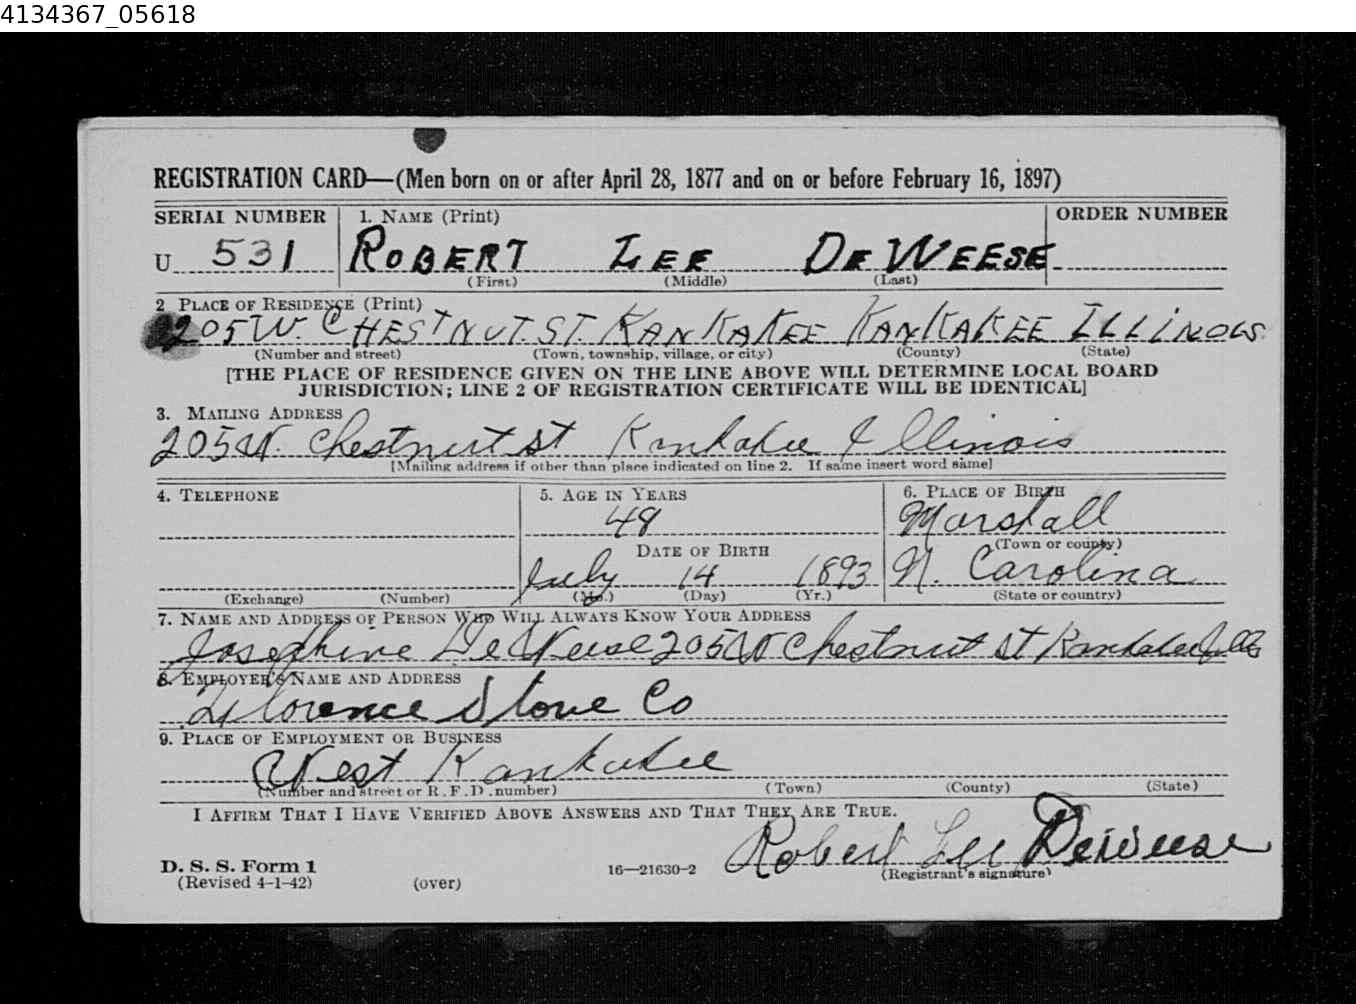 4134367_05618
REGISTRATION CARD—(Men born on or after April 28, 1877 and on or before February 16, 1897)
SERIAL NUMBER 1. NAME (Print) ORDER NUMBER
U 531 ROBERT LEE DEWEESE
(First) (Middle) (Last)
2 PLACE OF RESIDENCE (Print)
205 W. CHESTNUT. ST. KANKAKEE KANKAKEE ILLINOIS
(Number and street) (Town, township, village, or city) (County) (State)
[THE PLACE OF RESIDENCE GIVEN ON THE LINE ABOVE WILL DETERMINE LOCAL BOARD
JURISDICTION; LINE 2 OF REGISTRATION CERTIFICATE WILL BE IDENTICAL]
3. MAILING ADDRESS
205 W. Chestnut St Kankakee Illinois
[Mailing address if other than place indicated on line 2. If same insert word same]
4. TELEPHONE 5. AGE IN YEARS 6. PLACE OF BIRTH
48 Marshall
DATE OF BIRTH (Town or county)
July 14 1893 N. Carolina
(Exchange) (Number) (Mo.) (Day) (Yr.) (State or country)
7. NAME AND ADDRESS OF PERSON WHO WILL ALWAYS KNOW YOUR ADDRESS
Josephine DeWeese 205 W Chestnut St Kankakee Ill
8. EMPLOYER'S NAME AND ADDRESS
Florence Stove Co
9. PLACE OF EMPLOYMENT OR BUSINESS
West Kankakee
(Number and street or R. F. D. number) (Town) (County) (State)
I AFFIRM THAT I HAVE VERIFIED ABOVE ANSWERS AND THAT THEY ARE TRUE.
Robert Lee Deweese
D. S. S. Form 1 16—21630-2 (Registrant's signature)
(Revised 4-1-42) (over)